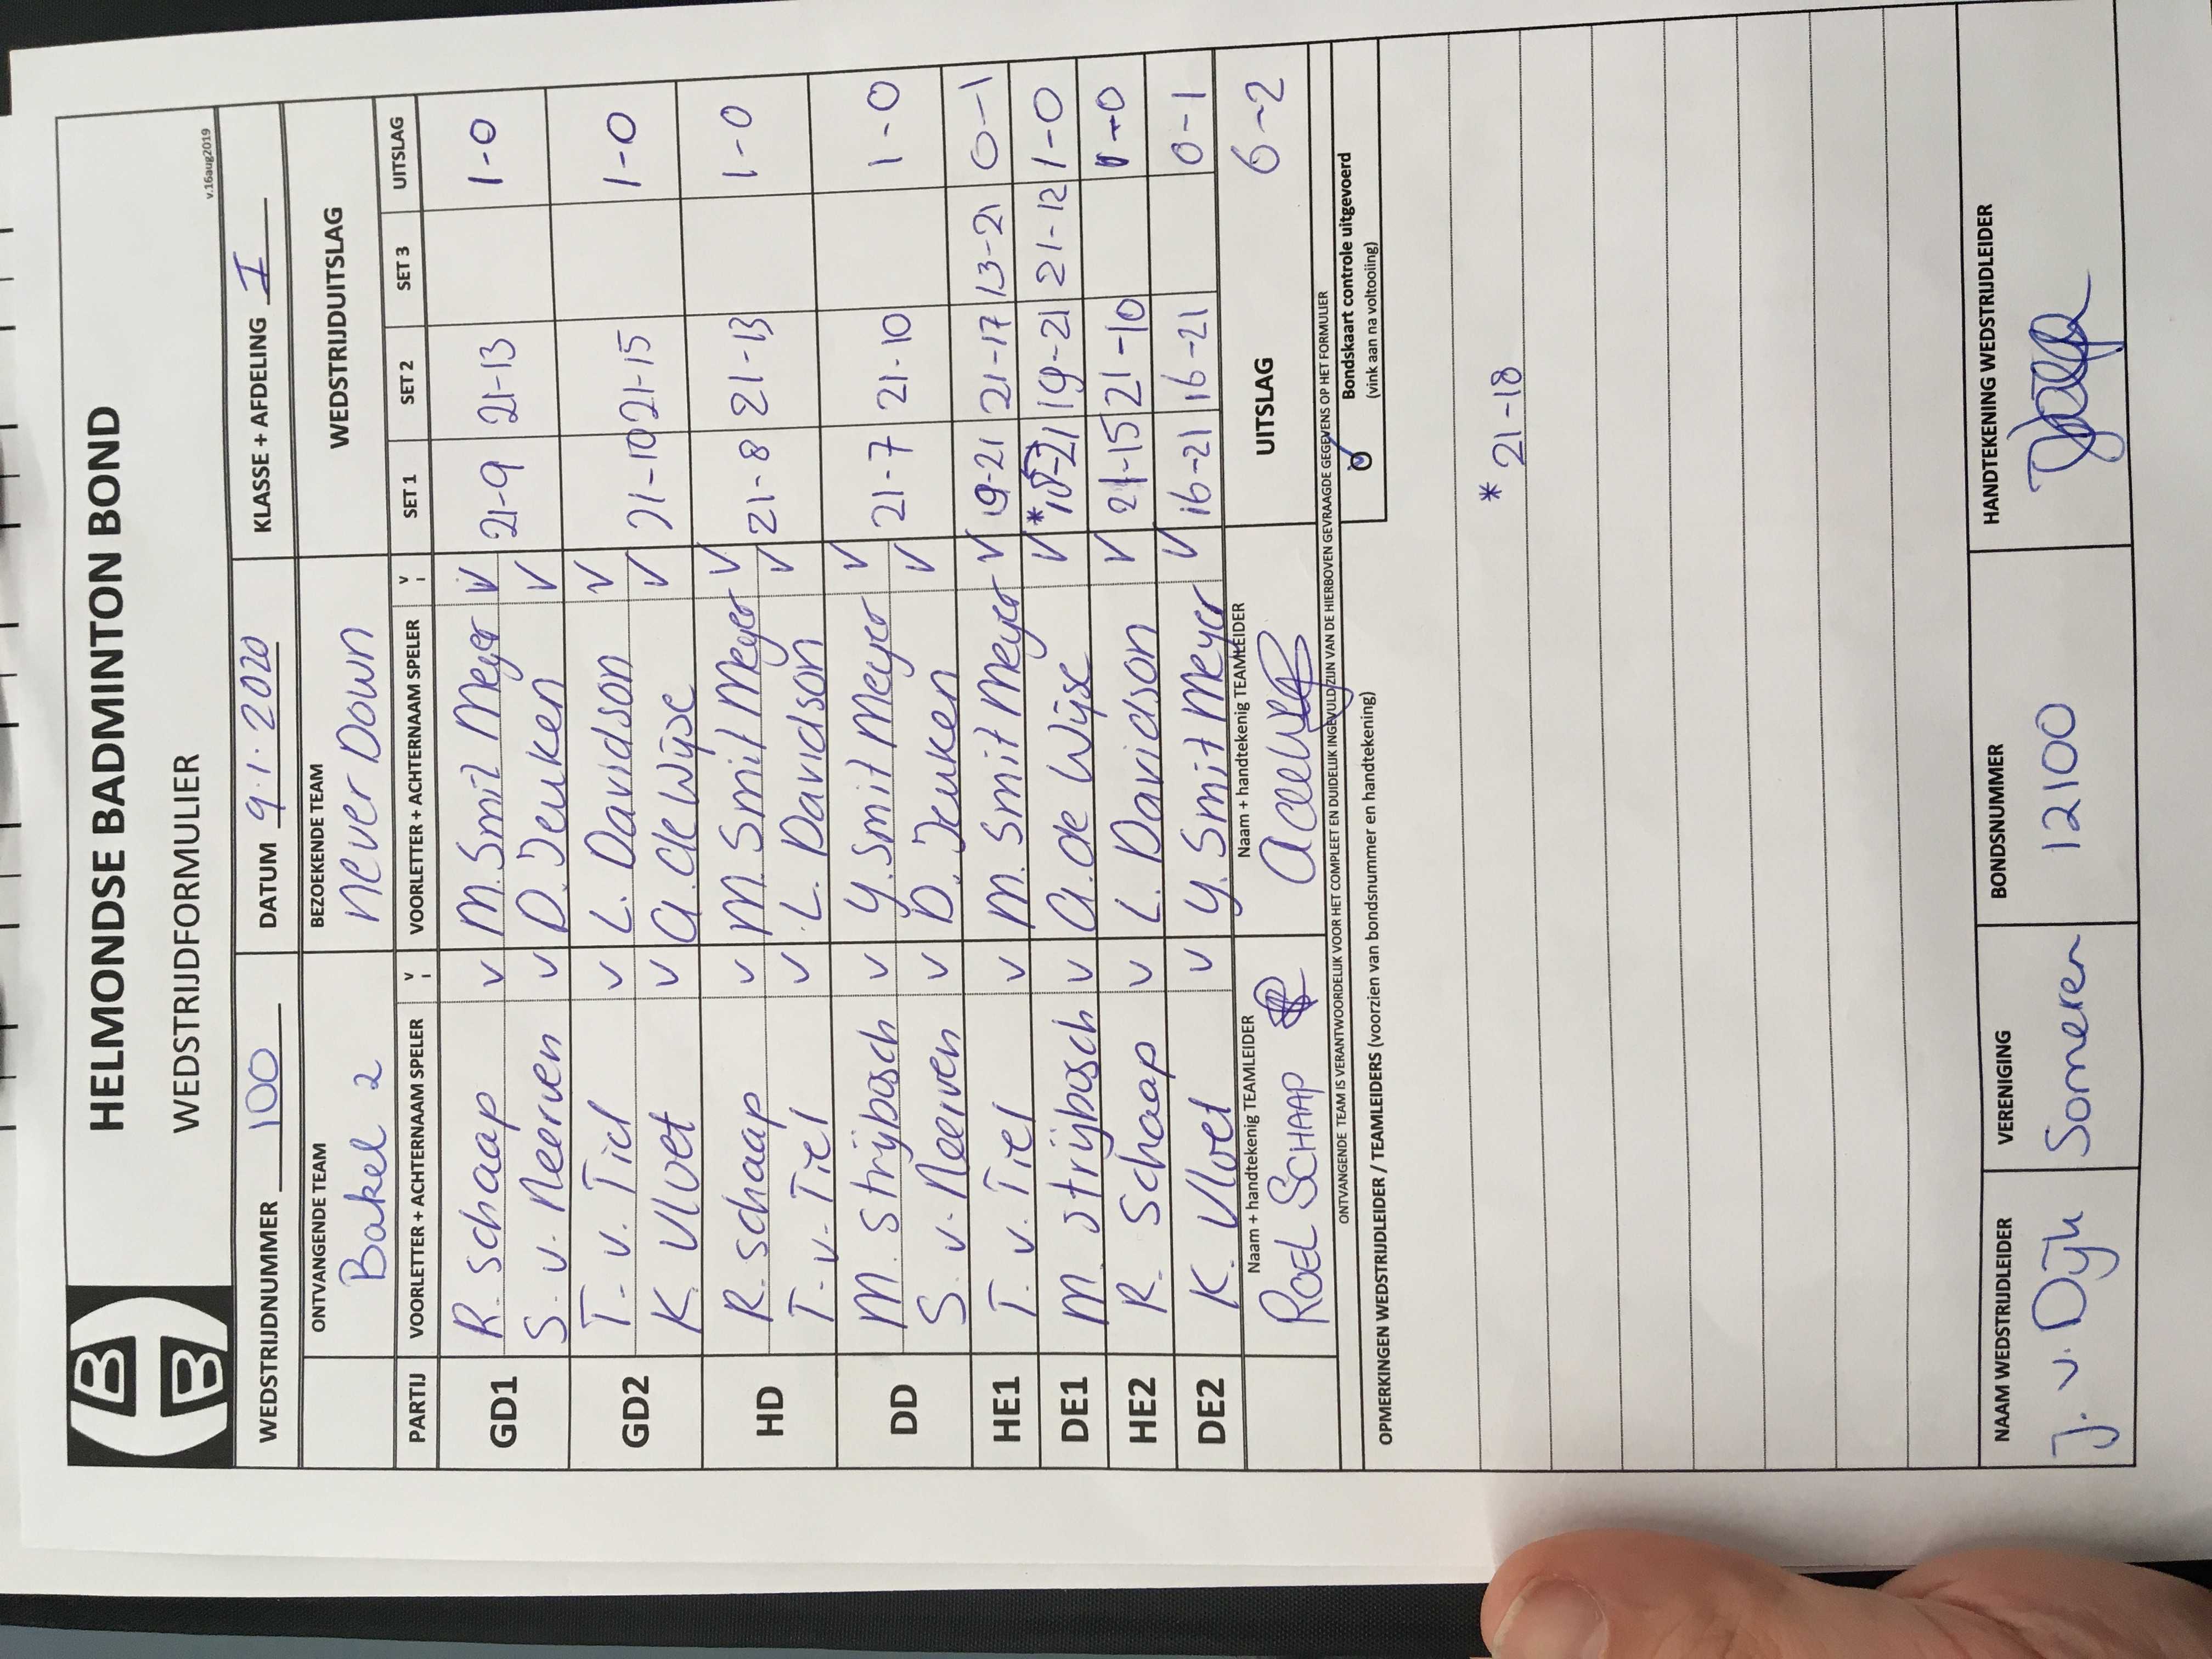 HELMONDSE BADMINTON BOND
WEDSTRIJDFORMULIER
v.16aug2019
WEDSTRIJDNUMMER 100 DATUM 9.1.2020 KLASSE + AFDELING I
ONTVANGENDE TEAM BEZOEKENDE TEAM WEDSTRIJDUITSLAG
Bakel 2 never Down
PARTIJ VOORLETTER + ACHTERNAAM SPELER V VOORLETTER + ACHTERNAAM SPELER V SET 1 SET 2 SET 3 UITSLAG
GD1 R. schaap v M. Smit Meyer V 21-9 21-13 1-0
S. v. Neerven v D. Jeuken V
GD2 T. v. Tiel v L. Davidson V 21-10 21-15 1-0
K. Vloet v A. de Wijse V
HD R. schaap v M. Smit Meyer V 21-8 21-13 1-0
T. v. Tiel v L. Davidson V
DD M. strijbosch v Y. Smit Meyer V 21-7 21-10 1-0
S. v. Neerven v D. Jeuken V
HE1 T. v. Tiel v M. Smit Meyer V 19-21 21-17 13-21 0-1
DE1 M strijbosch v A. de Wijse V * 19-21 21-12 1-0
HE2 R. Schaap v L. Davidson V 21-15 21-10 1-0
DE2 K. Vloet v Y. Smit Meyer V 16-21 16-21 0-1
Naam + handtekenig TEAMLEIDER Naam + handtekenig TEAMLEIDER UITSLAG 6-2
ROEL SCHAAP
ONTVANGENDE TEAM IS VERANTWOORDELIJK VOOR HET COMPLEET EN DUIDELIJK INGEVULD ZIJN VAN DE HIERBOVEN GEVRAAGDE GEGEVENS OP HET FORMULIER
Bondskaart controle uitgevoerd
(vink aan na voltooiing)
OPMERKINGEN WEDSTRIJDLEIDER / TEAMLEIDERS (voorzien van bondsnummer en handtekening)
* 21-18
NAAM WEDSTRIJDLEIDER VERENIGING BONDSNUMMER HANDTEKENING WEDSTRIJDLEIDER
J. v. Dijk Someren 12100